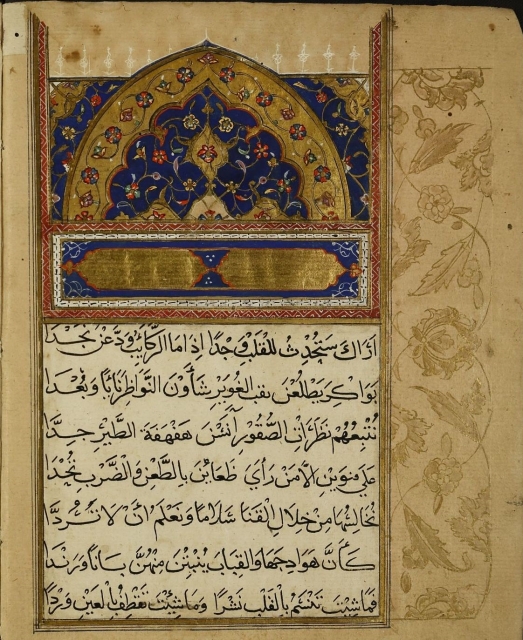 أراك ستحدث للقلب وجدا إذا ما الركائب ودعن نجدا
بواكر يطلعن نقب الغوير شأون النواظر نأيا وبعدا
نتبعهم نظرات الصقور آنسن هفهفة الطير جدا
على قنوين ألا من رأى ظعائن بالطعن والضرب تحدا
تخالسها من خلال القنا سلاما ونعلم أن لا تردا
كأن هوادجها والقباب يثنين منهن بانا ورندا
فما شئت تنسم بالقلب نشرا وما شئت تقطف بالعين وردا